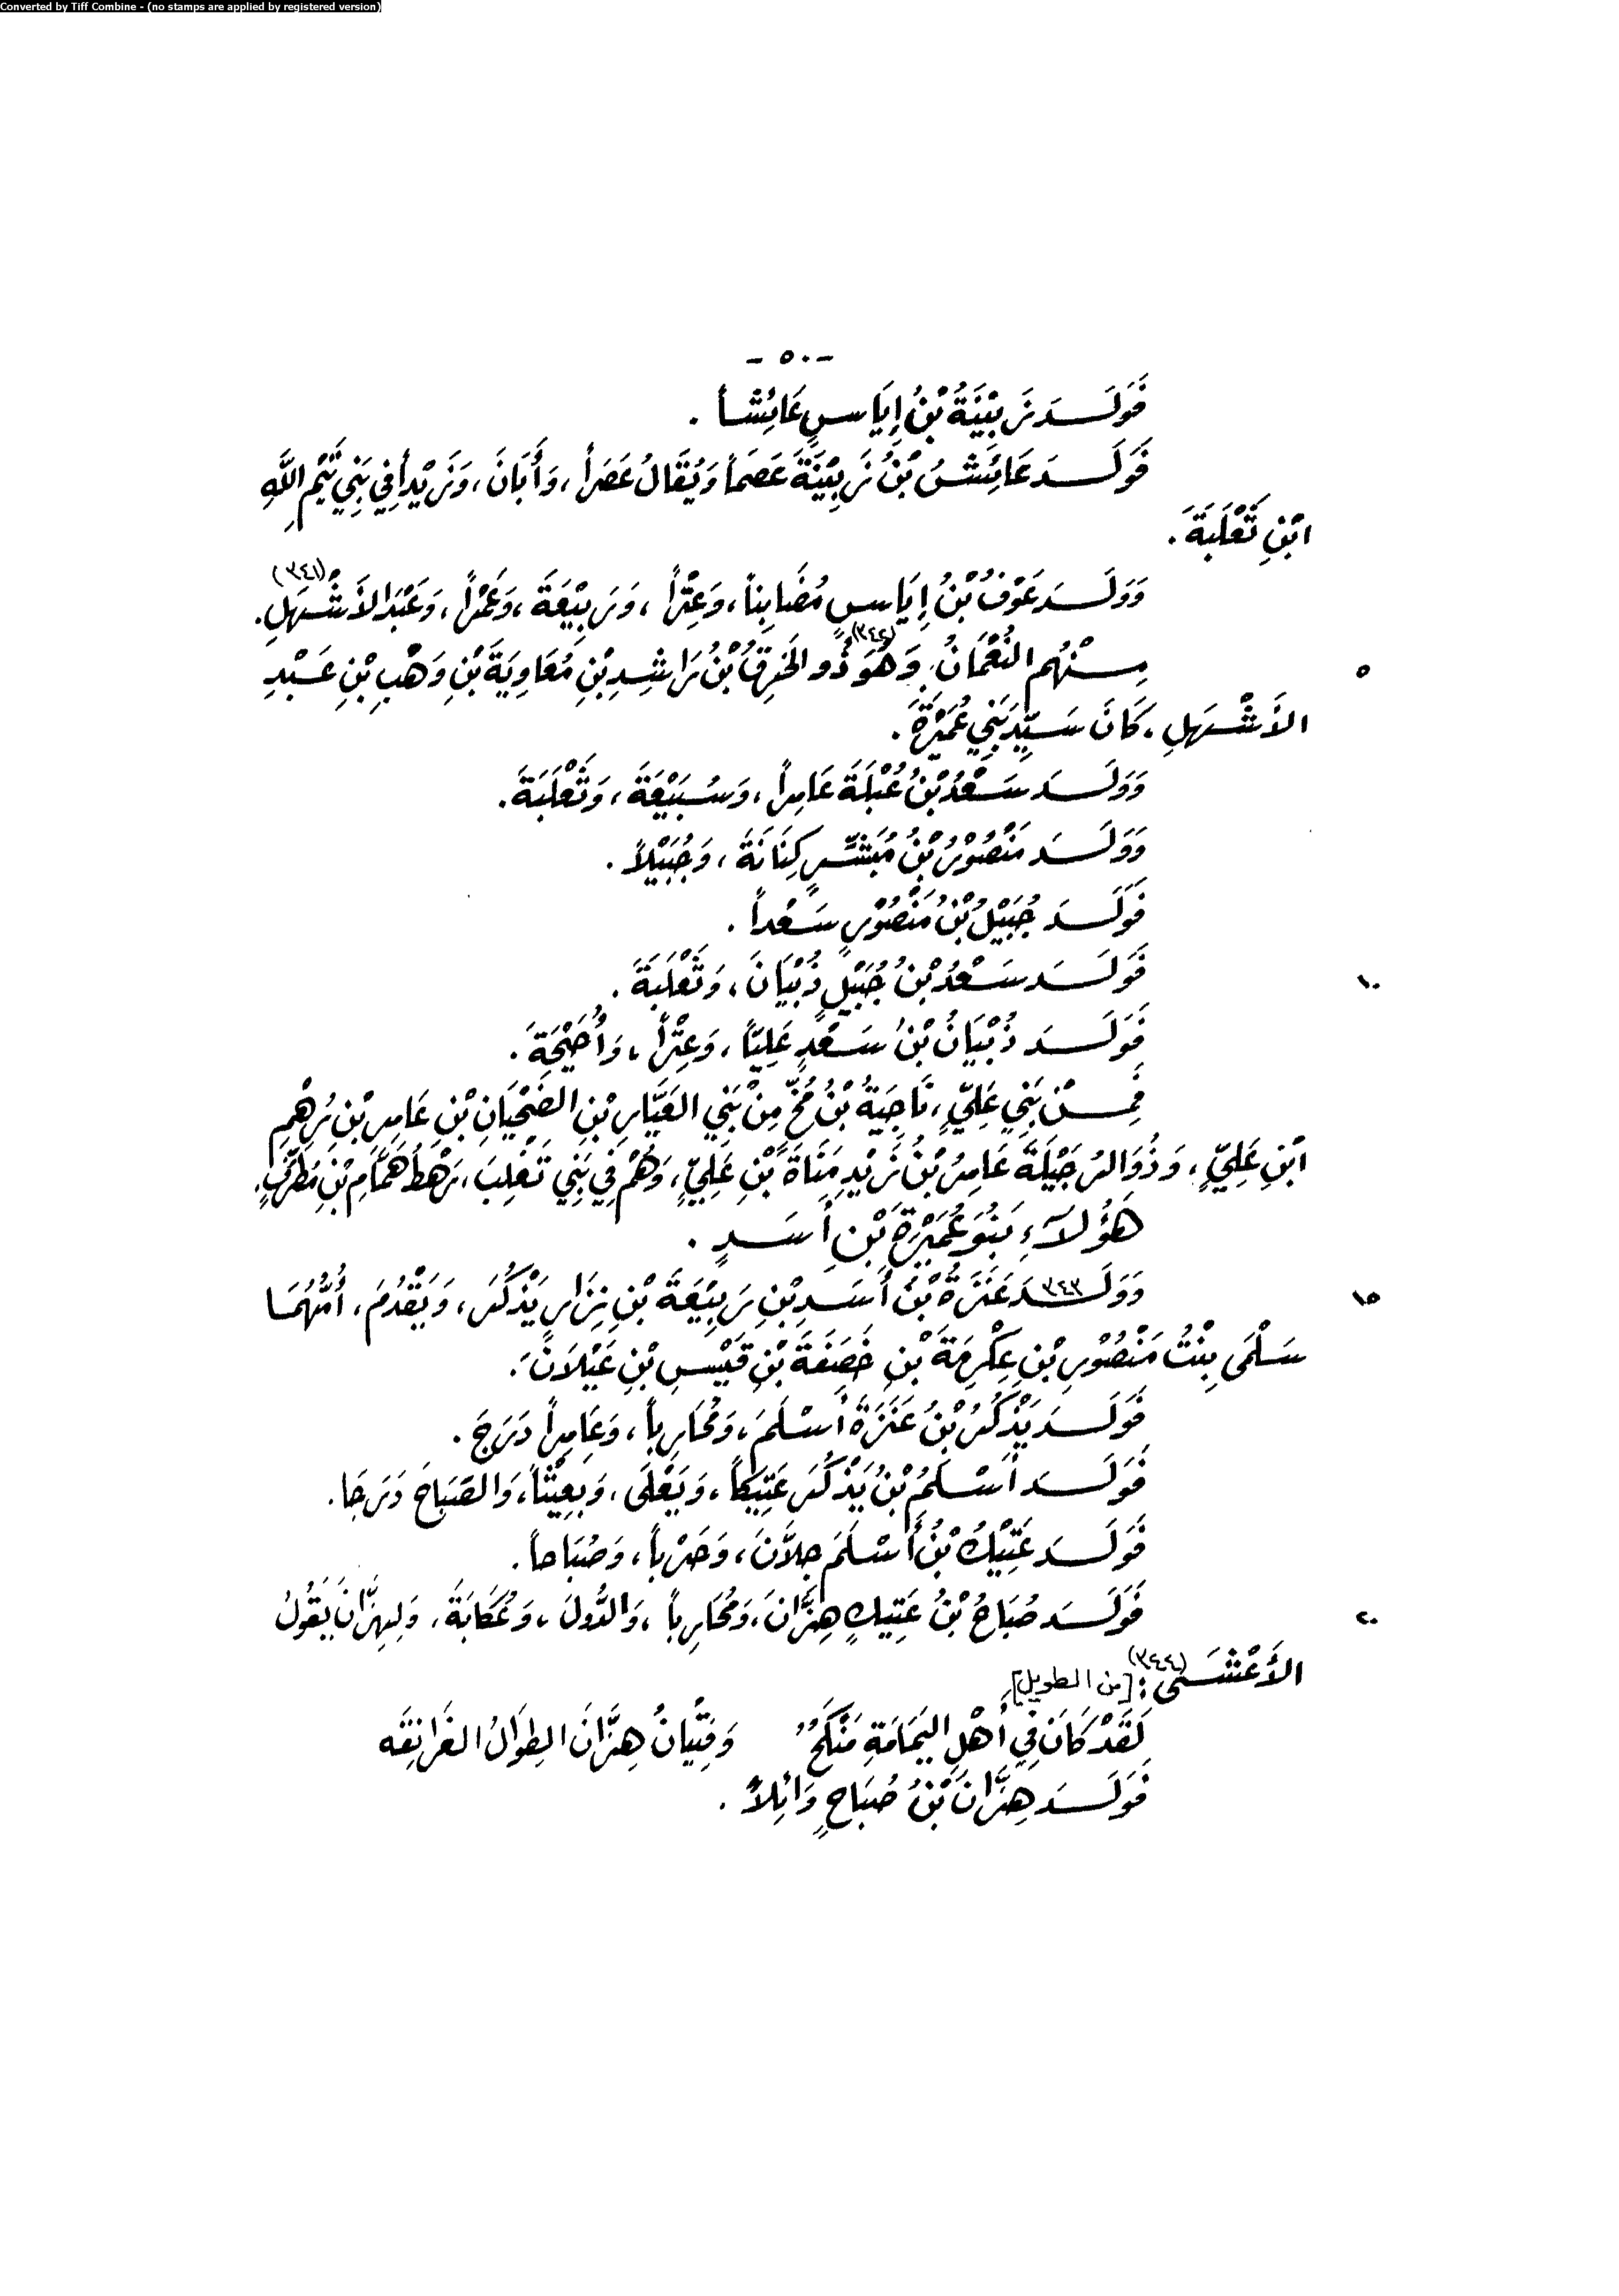 Converted by Tiff Combine - (no stamps are applied by registered version)
- ٥٠ -
فَوَلَــدَ زَبِيْنَةُ بْنُ إِيَاسٍ عَائِشَاً .
فَوَلَــدَ عَائِشُ بْنُ زَبِيْنَةَ عَصَمَاً وَيُقَالُ عَصَرَاً ، وَأَبَانَ ، وَزَيْداً فِي بَنِي تَيْمِ اللَّهِ
ابْنِ ثَعْلَبَةَ .
وَوَلَــدَ عَوْفُ بْنُ إِيَاسٍ مُضَابِنَاً ، وَعِتْراً ، وَرَبِيْعَةَ ، وَعَمْراً ، وَعَبْدَ الأَشْهَلِ (٣٤١) .
٥ مِــنْهُم النُّعْمَانُ ، وَهُوَ ذُو الخَرِقِ (٣٤٢) بْنُ رَاشِدِ بْنِ مُعَاوِيَةَ بْنِ وَهْبِ بْنِ عَبْدِ
الأَشْهَلِ ، كَانَ سَيِّدَ بَنِي عُمَيْرَةَ .
وَوَلَــدَ سَعْدُ بْنُ عُبْلَةَ عَامِراً ، وَسُبَيْعَةَ ، وَثَعْلَبَةَ .
وَوَلَــدَ مَنْصُوْرُ بْنُ مُبَشِّرٍ كِنَانَةَ ، وَجُبَيْلاً .
فَوَلَــدَ جُبَيْلُ بْنُ مَنْصُوْرٍ سَعْداً .
١٠ فَوَلَــدَ سَعْدُ بْنُ جُبَيْلٍ ذُبْيَانَ ، وَثَعْلَبَةَ .
فَوَلَــدَ ذُبْيَانُ بْنُ سَعْدٍ عَلِيَّاً ، وَعِتْراً ، وَأُضَيْحَةَ .
فَمِــنْ بَنِي عَلِيٍّ ، نَاجِيَةُ بْنُ مُخٍّ مِنْ بَنِي العَيَّارِ بْنِ الضَّحْيَانِ بْنِ عَامِرِ بْنِ رُهْمِ
ابْنِ عَلِيٍّ ، وَذُو الرُّجَيْلَةَ عَامِرُ بْنُ زَيْدِ مَنَاةَ بْنِ عَلِيٍّ ، وَهُمْ فِي بَنِي تَغْلِبَ ، رَهْطُ هَمَّامِ بْنِ مُطَرِّفٍ .
هَؤُلاَءِ بَنُو عُمَيْرَةَ بْنِ أَسَدٍ .
١٥ وَوَلَــدَ ٣٤٣ عَنَزَةُ بْنُ أَسَدِ بْنِ رَبِيْعَةَ بْنِ نِزَارٍ يَذْكُرَ ، وَيَقْدُمَ ، أُمُّهُمَا
سَلْمَى بِنْتُ مَنْصُوْرِ بْنِ عِكْرِمَةَ بْنِ خَصَفَةَ بْنِ قَيْسِ بْنِ عَيْلاَنَ .
فَوَلَــدَ يَذْكُرُ بْنُ عَنَزَةَ أَسْلَمَ ، وَمُحَارِباً ، وَعَامِراً دَرَجَ .
فَوَلَــدَ أَسْلَمُ بْنُ يَذْكُرَ عَتِيكاً ، وَيَعْلَى ، وَبِعِيْثاً ، وَالصَّبَاحَ دَرَجَا .
فَوَلَــدَ عَتِيْكُ بْنُ أَسْلَمَ جِلاَّنَ ، وَحَرْباً ، وَصُبَاحاً .
٢٠ فَوَلَــدَ صُبَاحُ بْنُ عَتِيكٍ هِزَّانَ ، وَمُحَارِباً ، وَالدُّوْلَ ، وَعُكَابَةَ ، وَلِهِزَّانَ يَقُولُ
الأَعْشَــى (٣٤٤) : [من الطويل]
لَقَدْ كَانَ فِي أَهْلِ اليَمَامَةِ مَنْكَحٌ وَفِتْيَانُ هِزَّانَ الطِوَالُ الغَرَانِقَه
فَوَلَــدَ هِزَّانُ بْنُ صُبَاحٍ وَائِلاً .